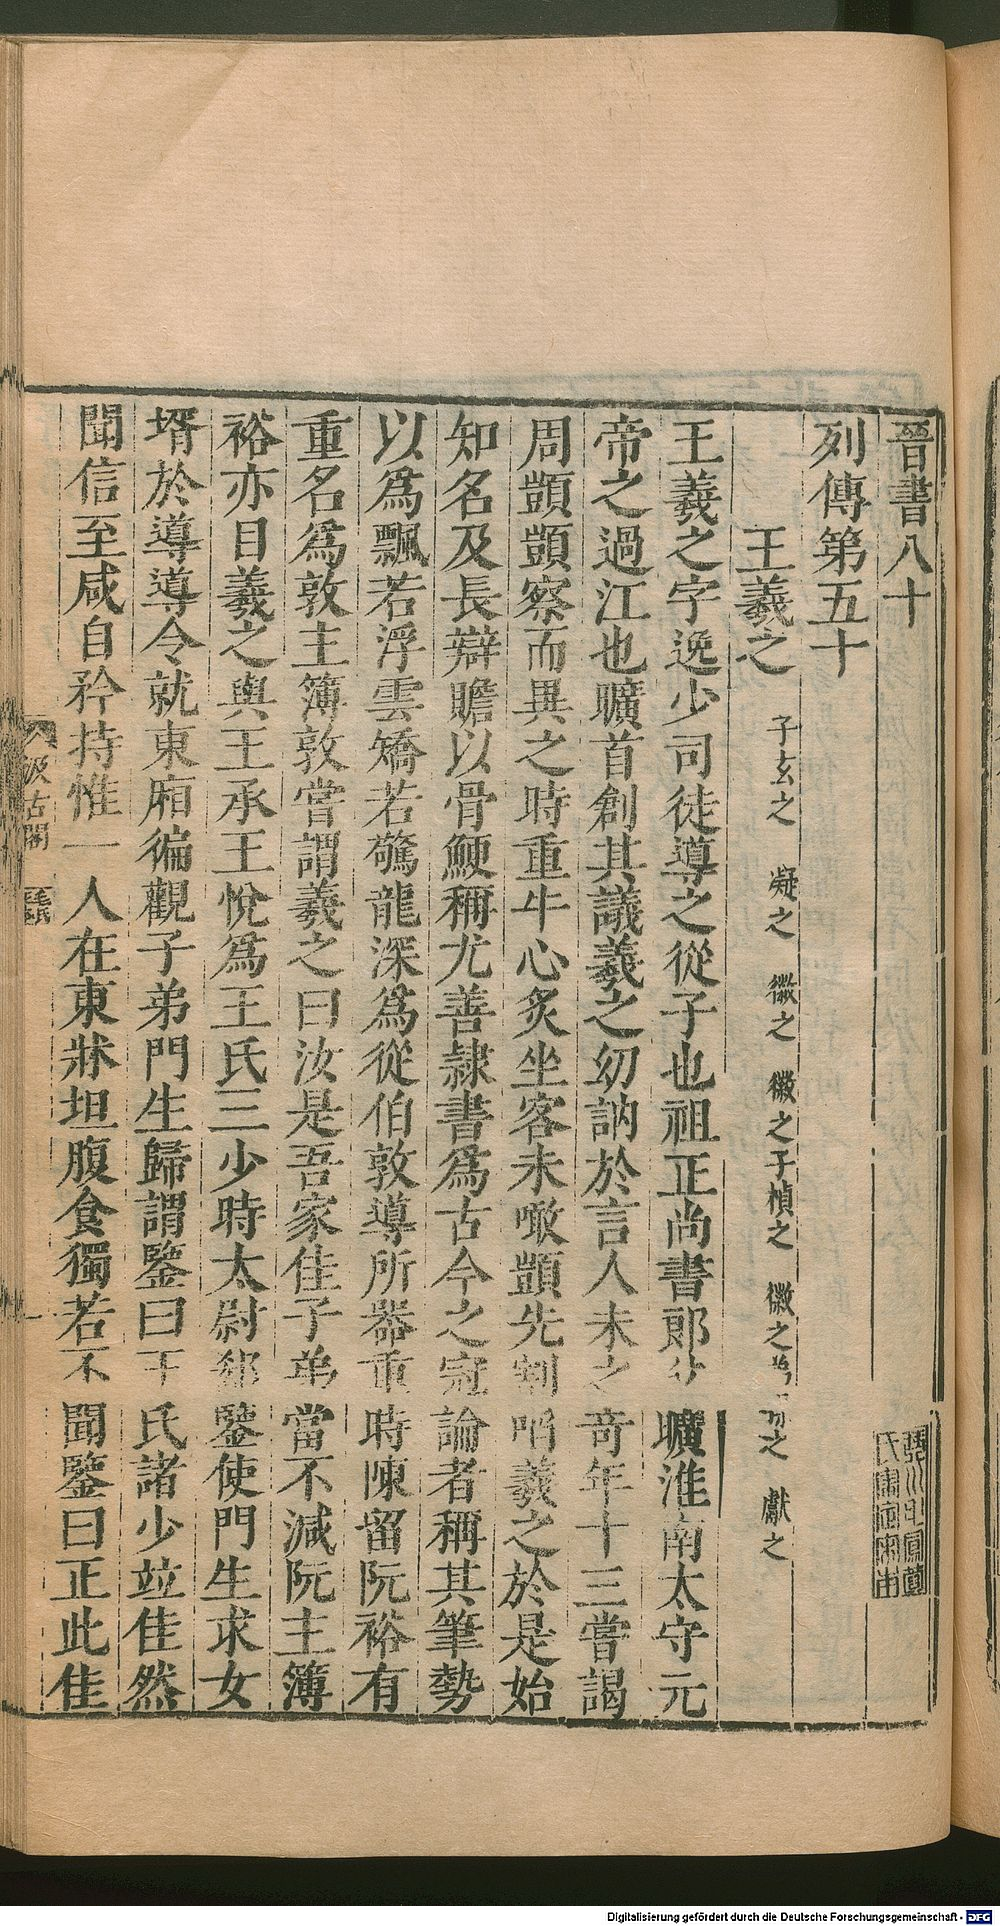 晉書八十
列傳第五十
王羲之 子玄之 凝之 徽之 徽之子楨之 徽之弟 之 獻之
王羲之字逸少司徒導之從子也祖正尚書郎父曠淮南太守元
帝之過江也曠首創其議羲之幼訥於言人未之奇年十三嘗謁
周顗顗察而異之時重牛心炙坐客未噉顗先割啗羲之於是始
知名及長辯贍以骨鯁稱尤善隷書爲古今之冠論者稱其筆勢
以爲飄若浮雲矯若驚龍深爲從伯敦導所器重時陳留阮裕有
重名爲敦主簿敦嘗謂羲之曰汝是吾家佳子弟當不減阮主簿
裕亦目羲之與王承王悅爲王氏三少時太尉郗鑒使門生求女
壻於導導令就東廂徧觀子弟門生歸謂鑒曰王氏諸少竝佳然
聞信至咸自矜持惟一人在東牀坦腹食獨若不聞鑒曰正此佳
汲古閣
毛氏
Digitalisierung gefördert durch die Deutsche Forschungsgemeinschaft - DFG